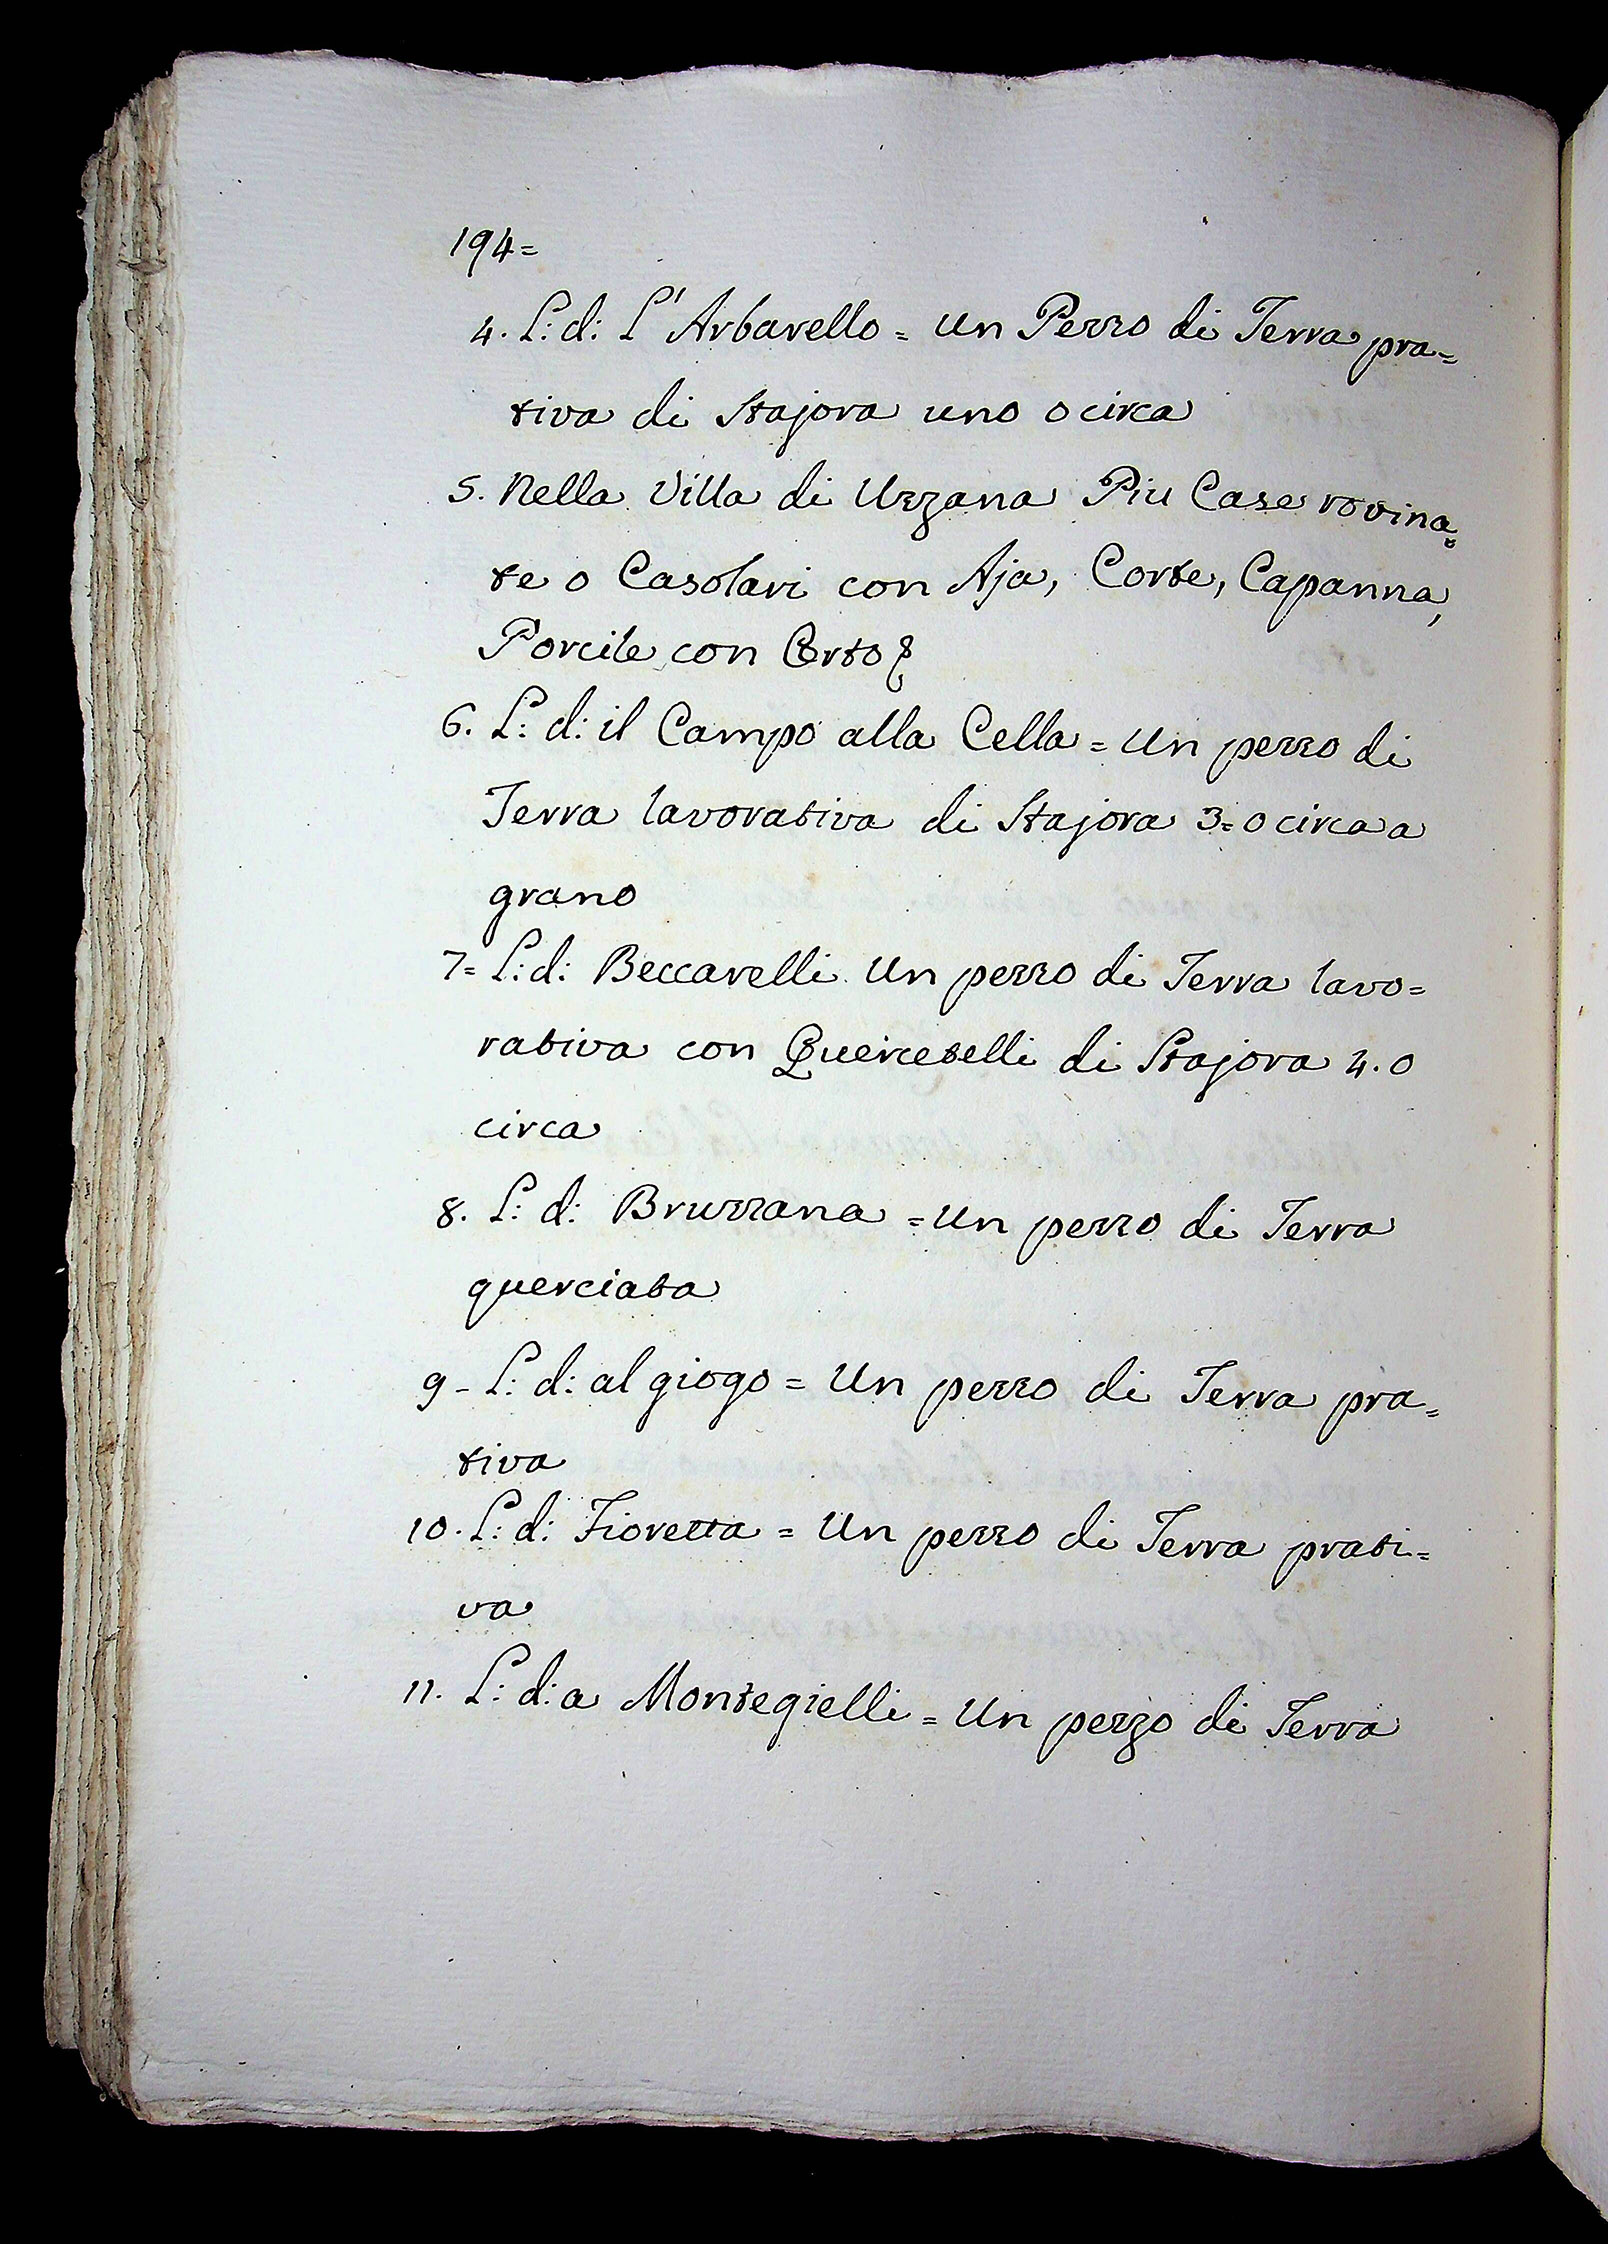 194=
4. L: d: L'Arbarello = Un Pezzo di Terra pra=
tiva di Stajora uno o circa
5. Nella Villa di Uzzana Piu Case rovina=
te o Casolari con Aja, Corte, Capanna,
Porcile con Orto
6. L: d: il Campo alla Cella = Un pezzo di
Terra lavorativa di Stajora 3= o circa a
grano
7= L: d: Beccarelli Un pezzo di Terra lavo=
rativa con Quercetelli di Stajora 4. o
circa
8. L: d: Bruzzana = Un pezzo di Terra
querciata
9 - L: d: al giogo = Un pezzo di Terra pra=
tiva
10. L: d: Fioretta = Un pezzo di Terra prati=
va
11. L: d: a Montegielli = Un pezzo di Terra